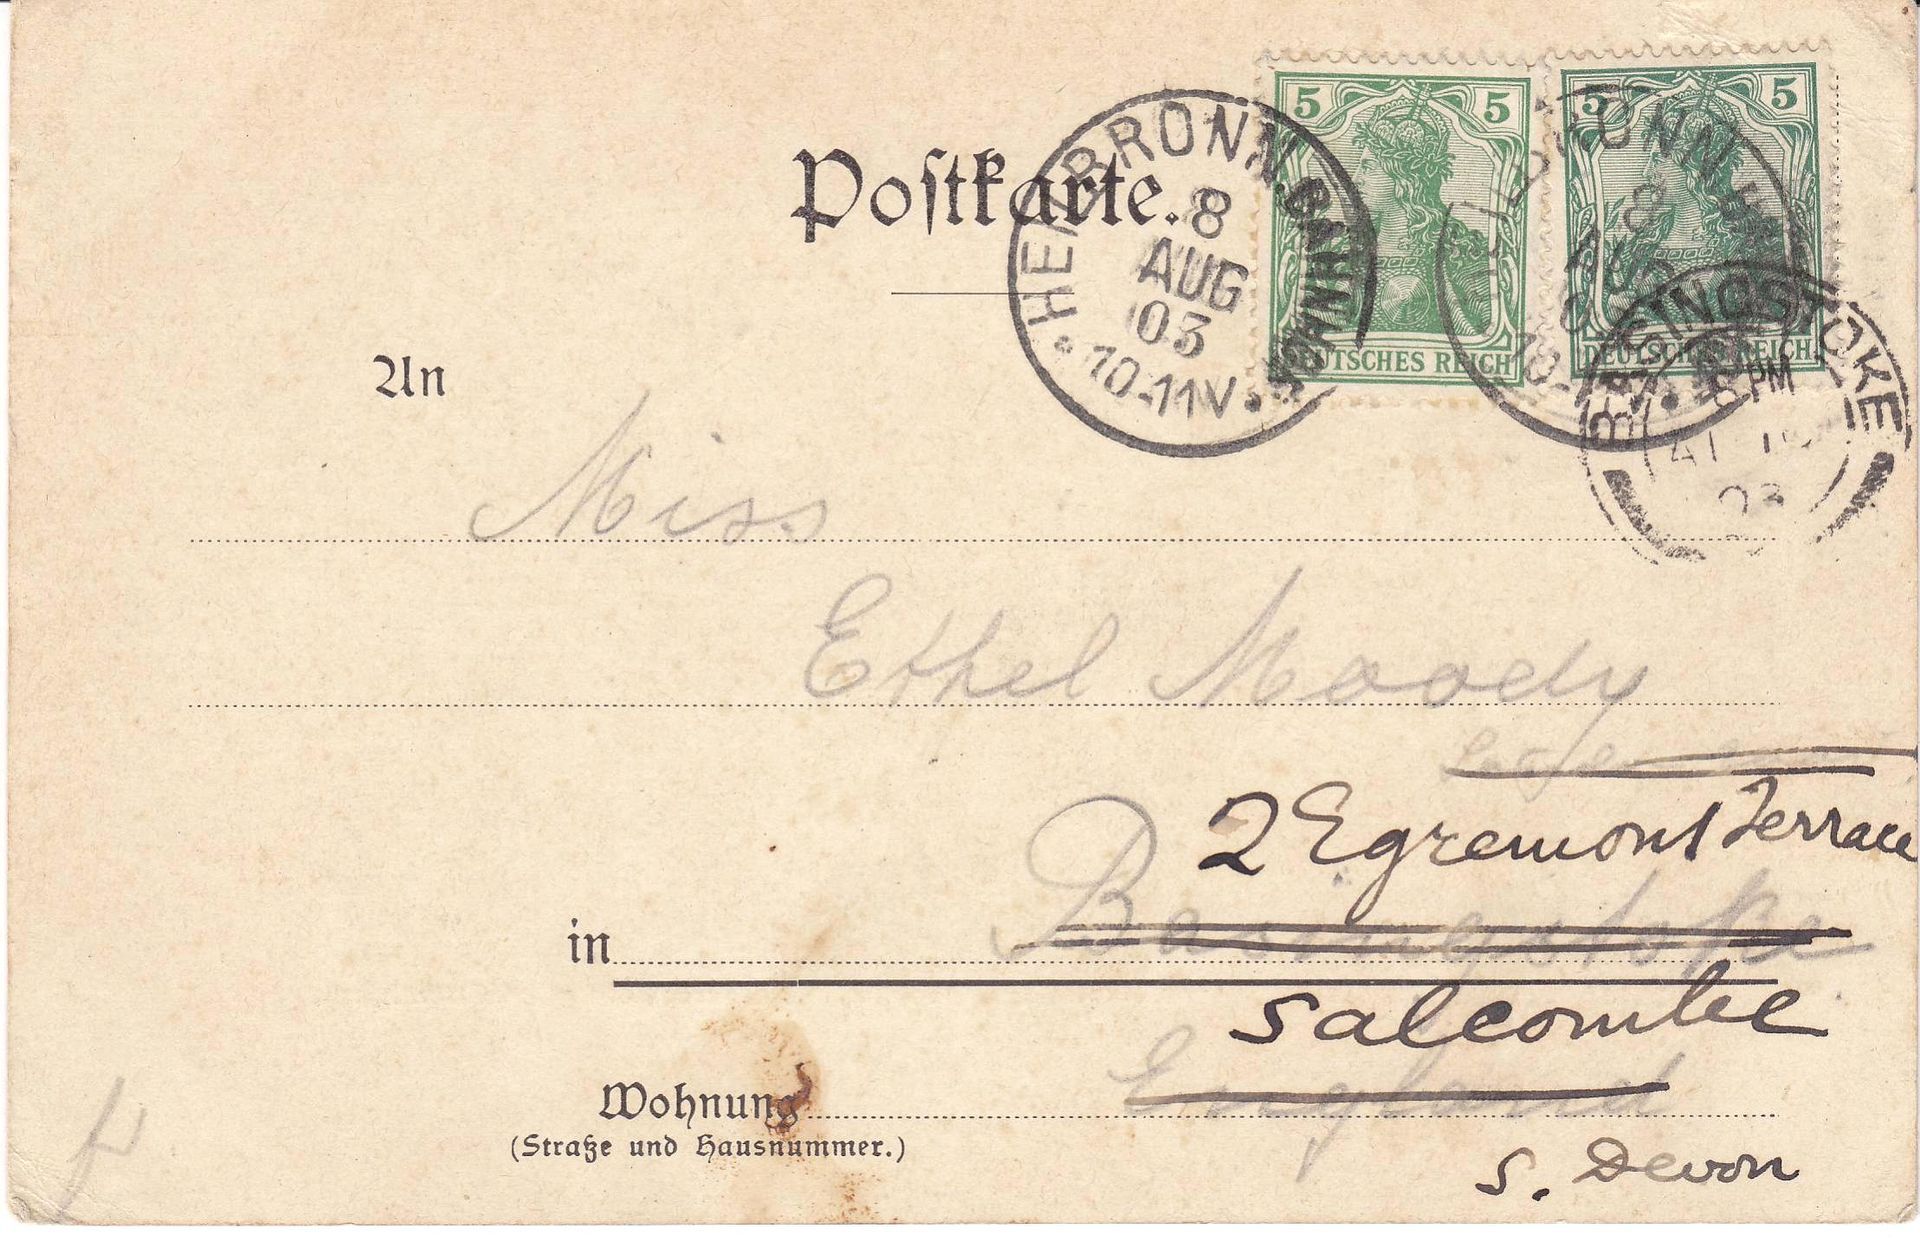 Postkarte.
HEILBRONN. BAHNHOF
8
AUG
03
10-11V.
5 5
DEUTSCHES REICH
5 5
DEUTSCHES REICH
8
AUG
BASINGSTOKE
PM
AU 10
03
An
Miss
Ethel Moody
2 Egremont Terrace
in Basingstoke
Salcombe
England
Wohnung
(Straße und Hausnummer.)
S. Devon